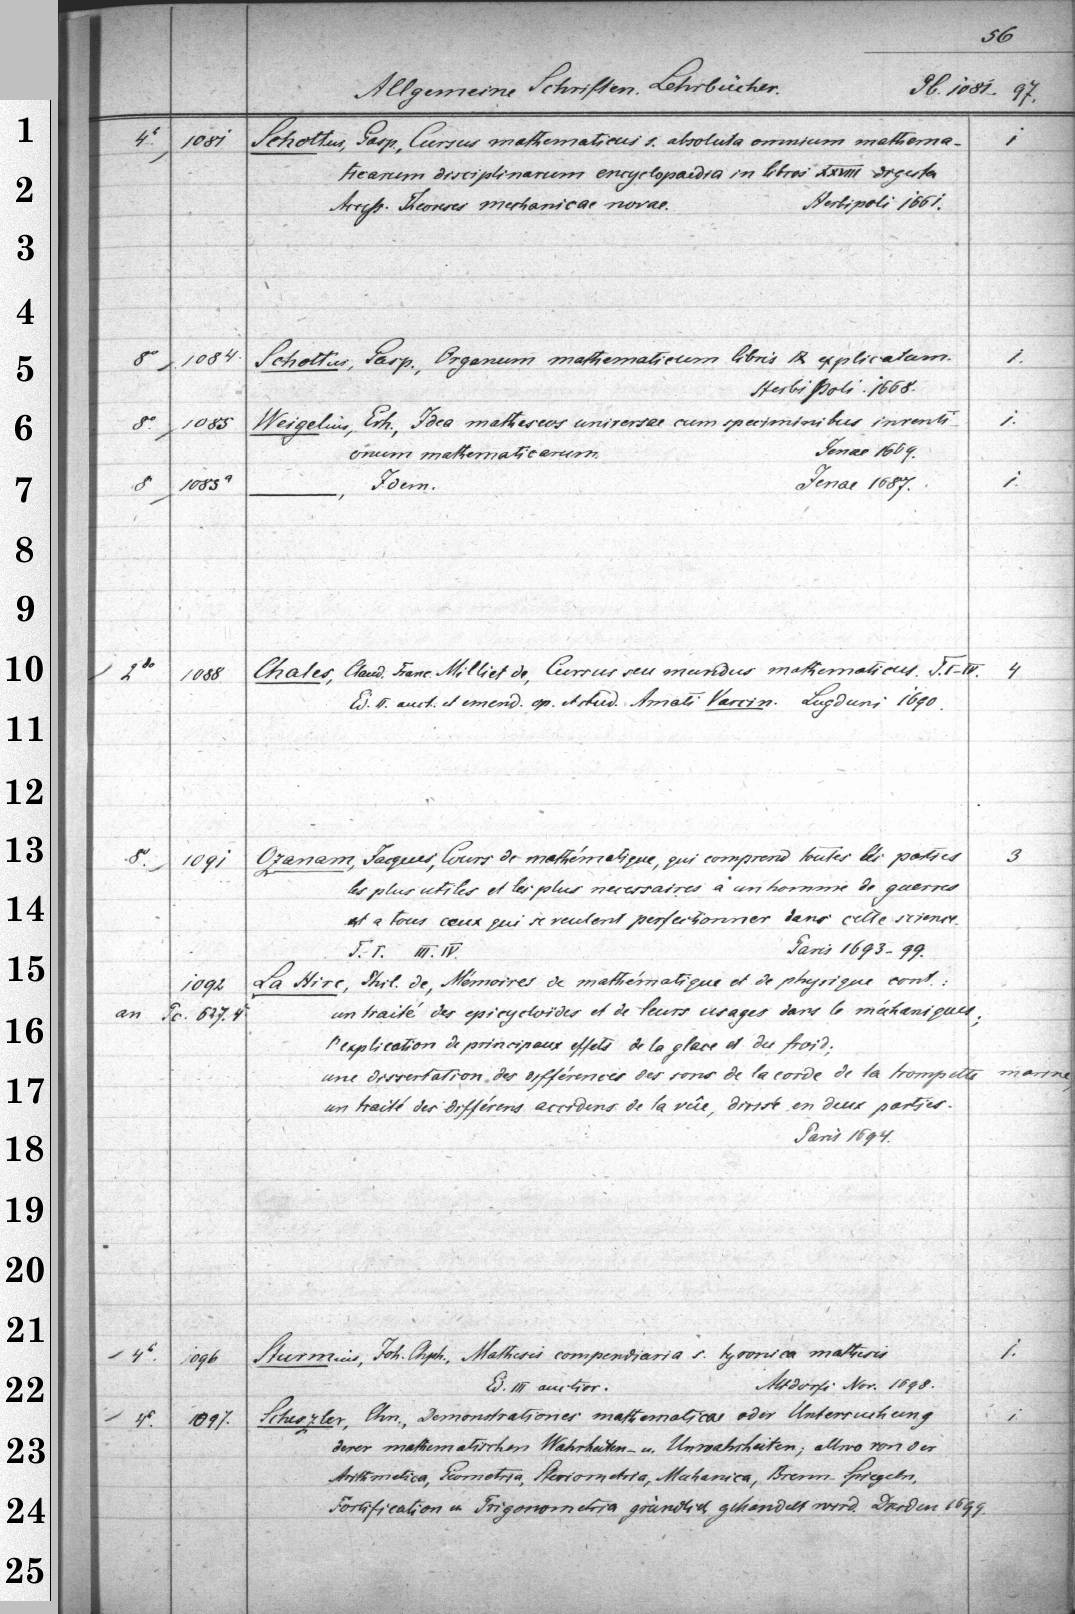 56
Allgemeine Schriften. Lehrbücher. Pb. 1081-97.
1
4° 1081 Schottus, Gasp., Cursus mathematicus s. absoluta omnium mathema- 1
2
ticarum disciplinarum encyclopaedia in libros XXVIII digesta
Access. Theoreses mechanicae novae. Herbipoli 1661.
3
4
5
8° 1084. Schottus, Gasp., Organum mathematicum libris IX explicatum. 1.
Herbipoli. 1668.
6
8° 1085 Weigelius, Erh., Idea matheseos universae cum speciminibus inventi- 1.
onum mathematicarum. Jenae 1669.
7
8 1085a ———, Idem. Jenae 1687. 1.
8
9
10
2do 1088 Chales, Claud. Franc. Milliet de, Cursus seu mundus mathematicus. T. I-IV. 4
Ed. II. auct. et emend. op. et stud. Amati Varcin. Lugduni 1690.
11
12
13
8°. 1091 Ozanam, Jacques, Cours de mathématique, qui comprend toutes les parties 3
les plus utiles et les plus necessaires à un homme de guerres
14
et a tous ceux qui se veulent perfectionner dans cette science.
T. I. III. IV. Paris 1693-99.
15
1092 La Hire, Phil. de, Mémoires de mathématique et de physique cont.:
an Pc. 527. 4° un traité des epicycloides et de leurs usages dans le méchaniques;
16
l'explication de principaux effets de la glace et du froid;
17
une dissertation des différences des sons de la corde de la trompette marine,
un traité des différens accidens de la vûe, divisé en deux parties.
18
Paris 1694.
19
20
21
4°. 1096 Sturmius, Joh. Chph., Mathesis compendiaria s. tyronica mathesis 1.
22
Ed. III auctior. Altdorfi Nor. 1698.
4°. 1097. Scheszler, Chn., Demonstrationes mathematicae oder Untersuchung 1
23
derer mathematischen Wahrheiten- u. Unwahrheiten; allwo von der
Arithmetica, Geometria, Steriometria, Mechanica, Brenn-Spiegeln,
24
Fortification u. Trigonometria gründlich gehandelt wird. Dresden 1699.
25